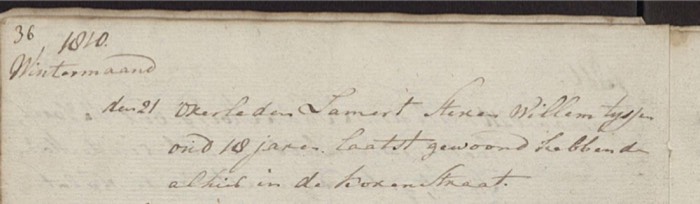 36
1810.
Wintermaand
den 21 Overleden Lamert Steven Willem tyssen
oud 18 jaren. laatst gewoond hebbende
alhier in de straat.